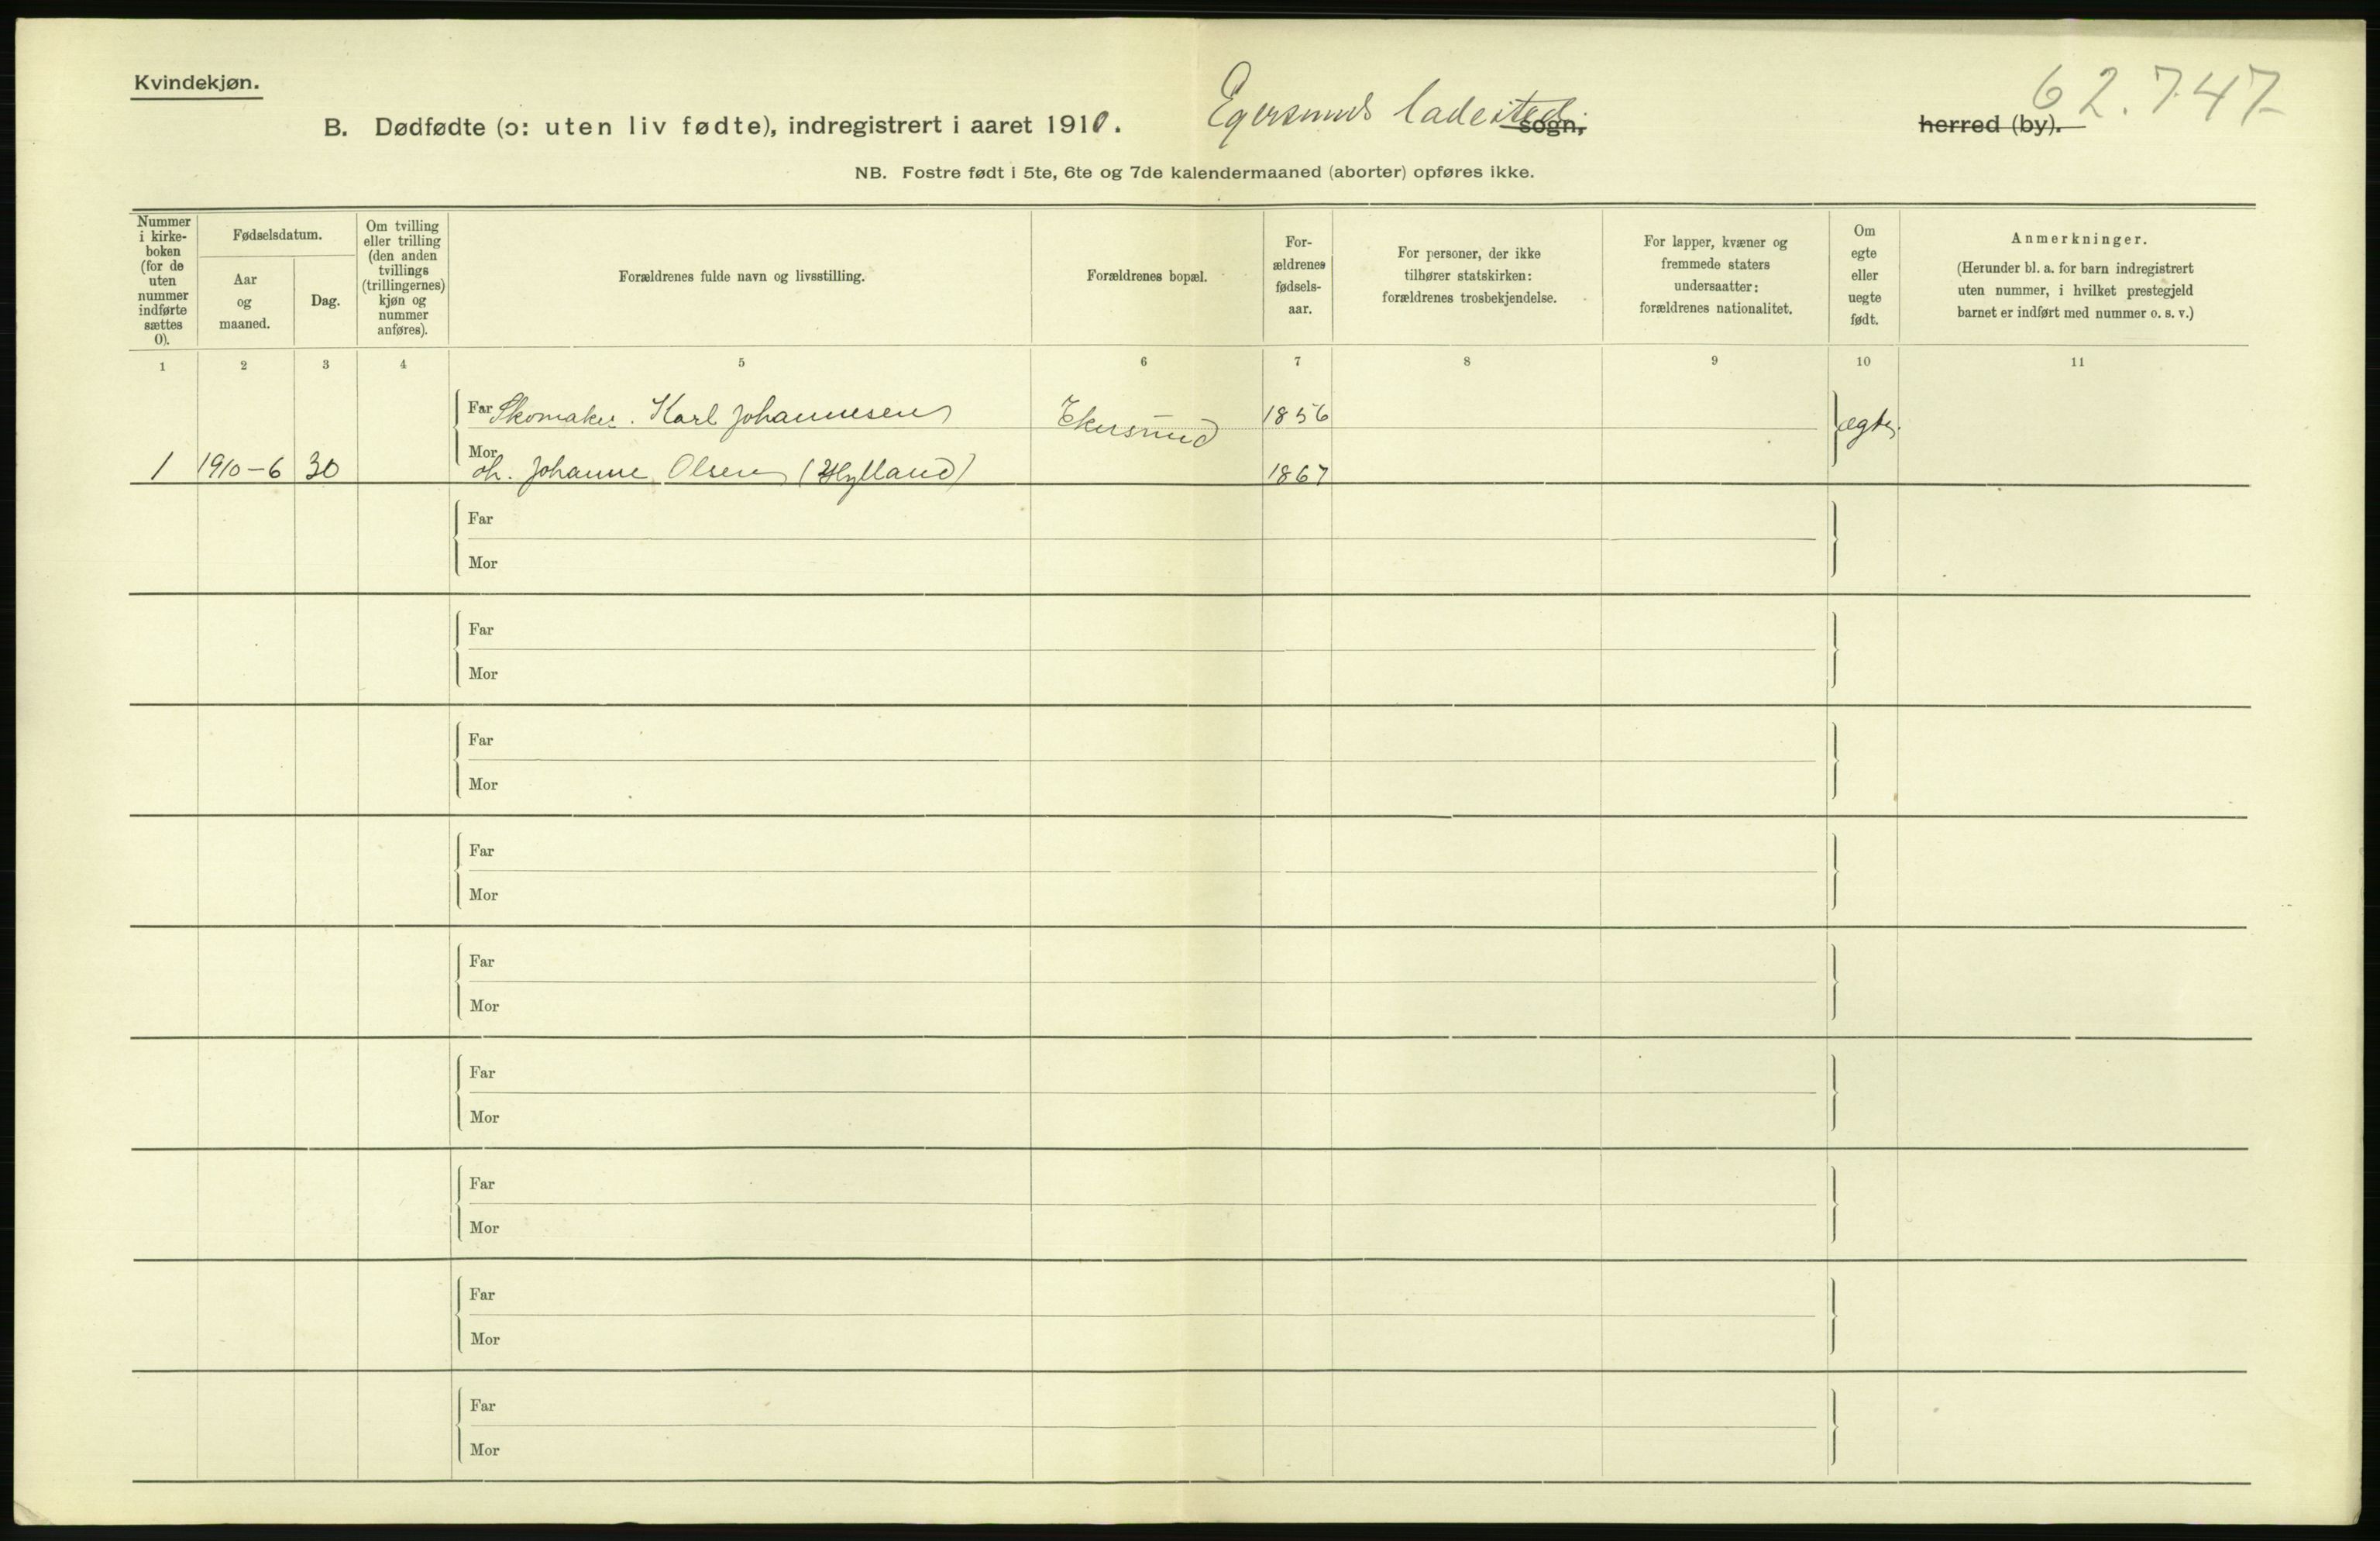 Kvindekjøn.
62.747
B. Dødfødte (ɔ: uten liv fødte), indregistrert i aaret 1910. Egersunds ladested sogn. herred (by).
NB. Fostre født i 5te, 6te og 7de kalendermaaned (aborter) opføres ikke.
Nummer
i kirke-
boken
(for de
uten
nummer
indførte
sættes
0).
Fødselsdatum.
Aar
og
maaned.
Dag.
Om tvilling
eller trilling
(den anden
tvillings
(trillingernes)
kjøn og
nummer
anføres).
Forældrenes fulde navn og livsstilling.
Forældrenes bopæl.
For-
ældrenes
fødsels-
aar.
For personer, der ikke
tilhører statskirken:
forældrenes trosbekjendelse.
For lapper, kvæner og
fremmede staters
undersaatter:
forældrenes nationalitet.
Om
egte
eller
uegte
født.
Anmerkninger.
(Herunder bl. a. for barn indregistrert
uten nummer, i hvilket prestegjeld
barnet er indført med nummer o. s. v.)
1 2 3 4 5 6 7 8 9 10 11
Far Skomaker. Karl Johannesen Ekersund 1856 ægte
1 1910-6 30 Mor Johanne Olsen (Hylland) 1867
Far
Mor
Far
Mor
Far
Mor
Far
Mor
Far
Mor
Far
Mor
Far
Mor
Far
Mor
Far
Mor